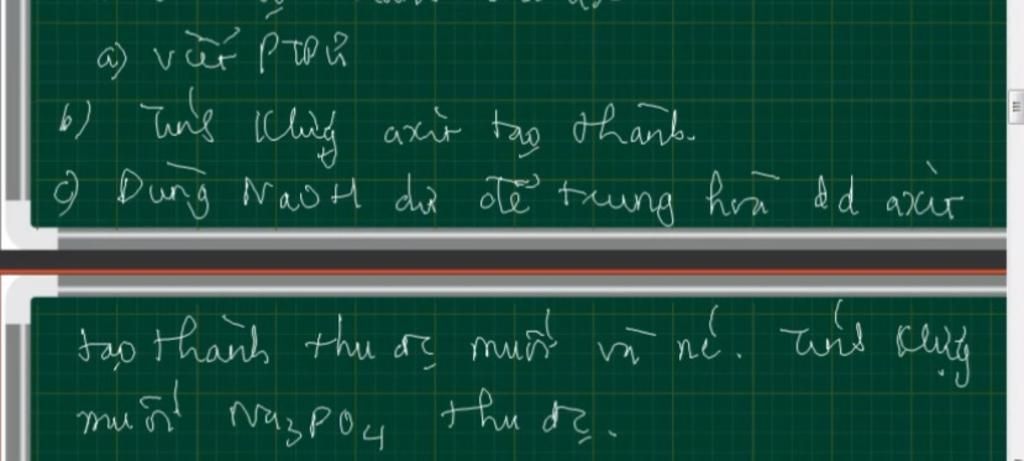 a) viết PTPƯ
b) Tính klượng axit tạo thành.
c) Dùng NaOH dư để trung hoà dd axit
tạo thành thu đc muối và nc. Tính klượng
muối Na3PO4 thu đc.